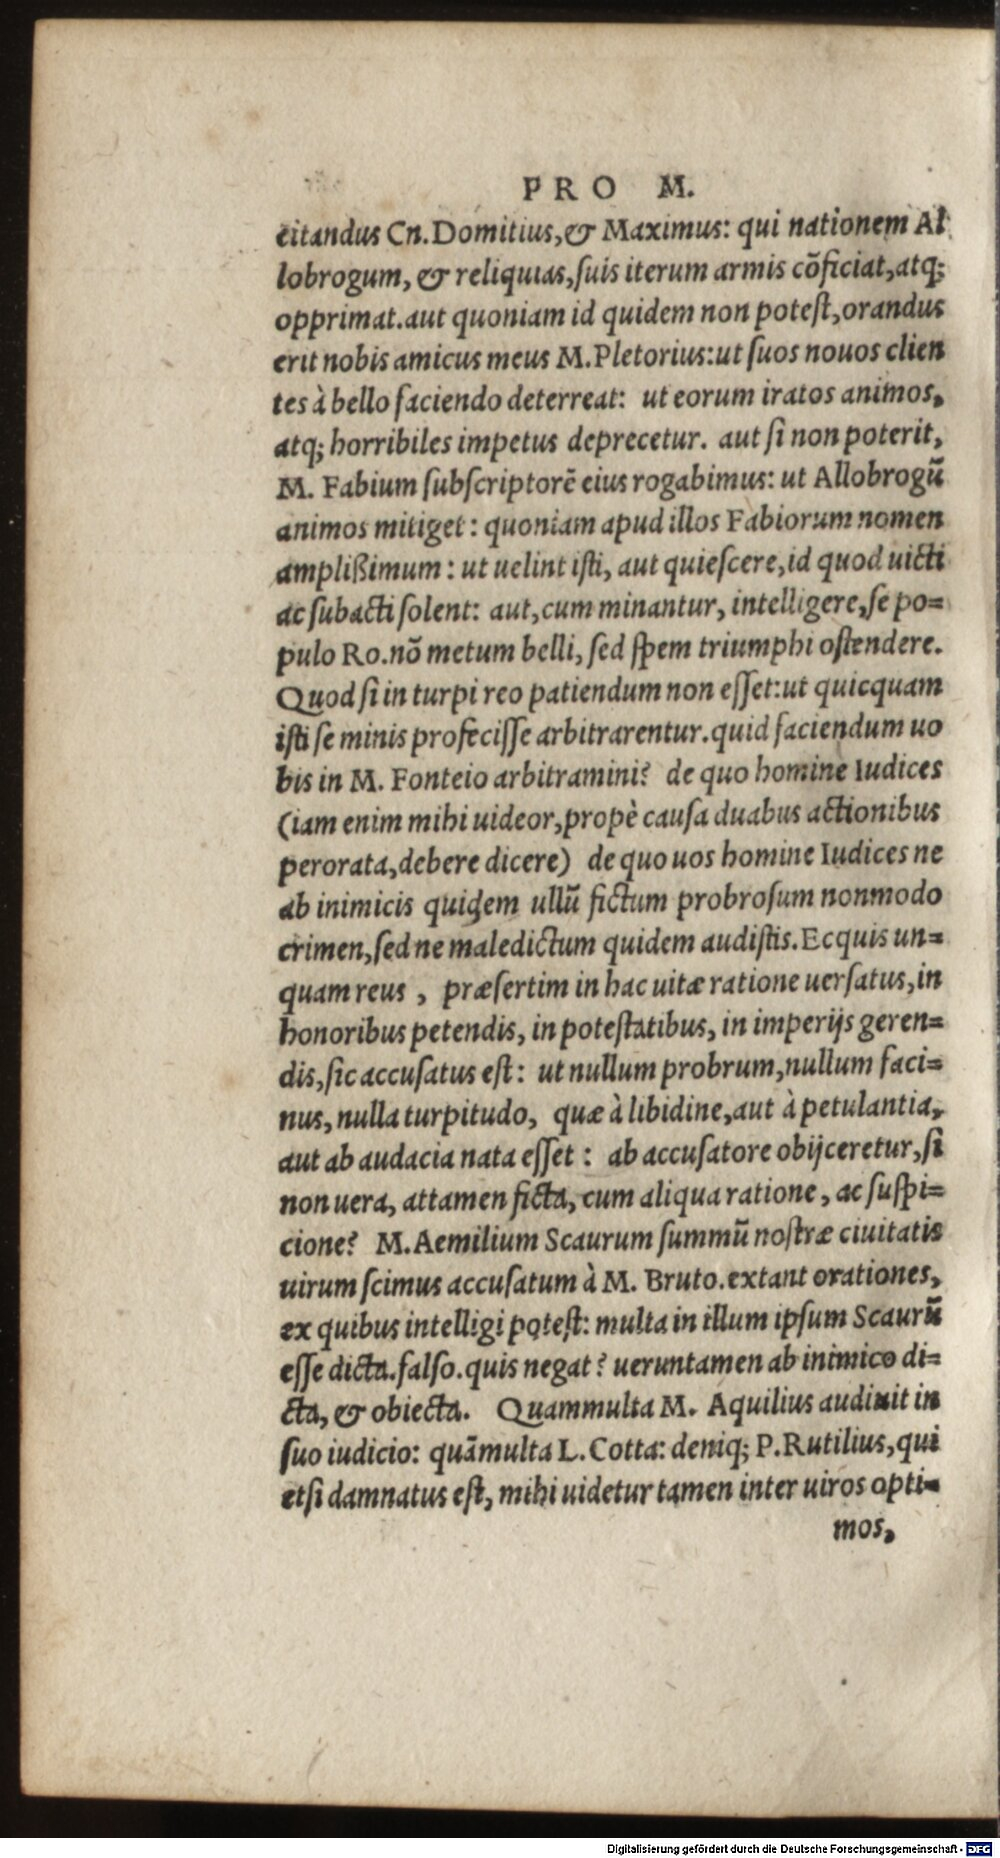 PRO M.
citandus Cn. Domitius, & Maximus: qui nationem Al
lobrogum, & reliquias, suis iterum armis cõficiat, atq;
opprimat. aut quoniam id quidem non potest, orandus
erit nobis amicus meus M. Pletorius: ut suos nouos clien
tes à bello faciendo deterreat: ut eorum iratos animos,
atq; horribiles impetus deprecetur. aut si non poterit,
M. Fabium subscriptorẽ eius rogabimus: ut Allobrogũ
animos mitiget: quoniam apud illos Fabiorum nomen
amplißimum: ut uelint isti, aut quiescere, id quod uicti
ac subacti solent: aut, cum minantur, intelligere, se po=
pulo Ro. nõ metum belli, sed spem triumphi ostendere.
Quod si in turpi reo patiendum non esset: ut quicquam
isti se minis profecisse arbitrarentur. quid faciendum uo
bis in M. Fonteio arbitramini? de quo homine Iudices
(iam enim mihi uideor, propè causa duabus actionibus
perorata, debere dicere) de quo uos homine Iudices ne
ab inimicis quidem ullũ fictum probrosum nonmodo
crimen, sed ne maledictum quidem audistis. Ecquis un=
quam reus, præsertim in hac uitæ ratione uersatus, in
honoribus petendis, in potestatibus, in imperijs geren=
dis, sic accusatus est: ut nullum probrum, nullum faci=
nus, nulla turpitudo, quæ à libidine, aut à petulantia,
aut ab audacia nata esset: ab accusatore obijceretur, si
non uera, attamen ficta, cum aliqua ratione, ac suspi=
cione? M. Aemilium Scaurum summũ nostræ ciuitatis
uirum scimus accusatum à M. Bruto. extant orationes,
ex quibus intelligi potest: multa in illum ipsum Scaurũ
esse dicta. falso. quis negat? ueruntamen ab inimico di=
cta, & obiecta. Quammulta M. Aquilius audiuit in
suo iudicio: quãmulta L. Cotta: deniq; P. Rutilius, qui
etsi damnatus est, mihi uidetur tamen inter uiros opti=
mos,
Digitalisierung gefördert durch die Deutsche Forschungsgemeinschaft - DFG